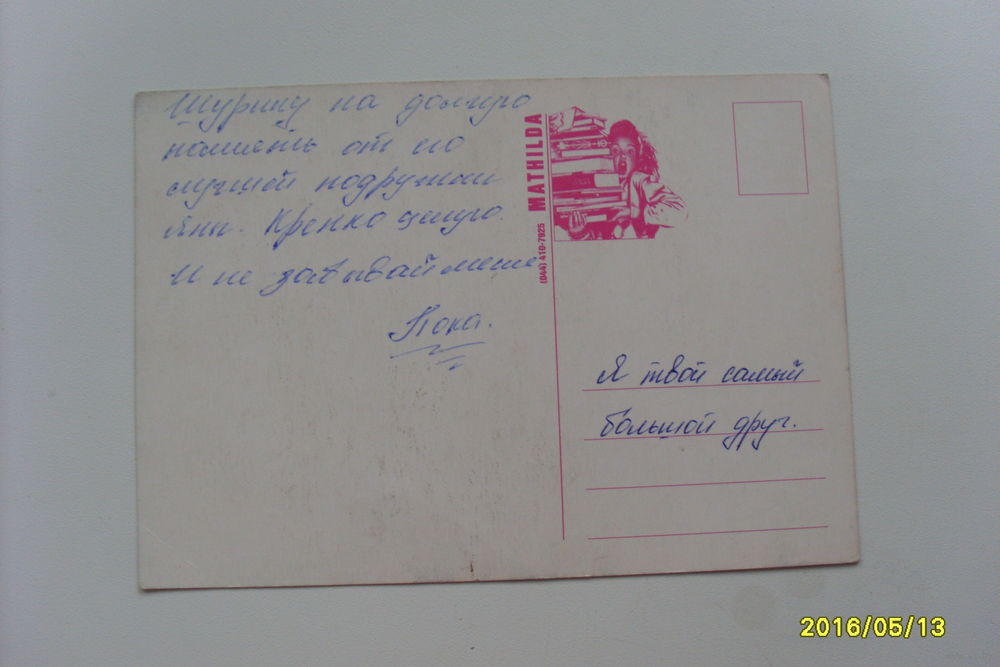 Шурину на долгую
память от его
лучшей подружки
Яны. Крепко целую.
И не забывай меня
Пока.
MATHILDA
(044) 410-7925
Я твой самый
большой друг.
2016/05/13